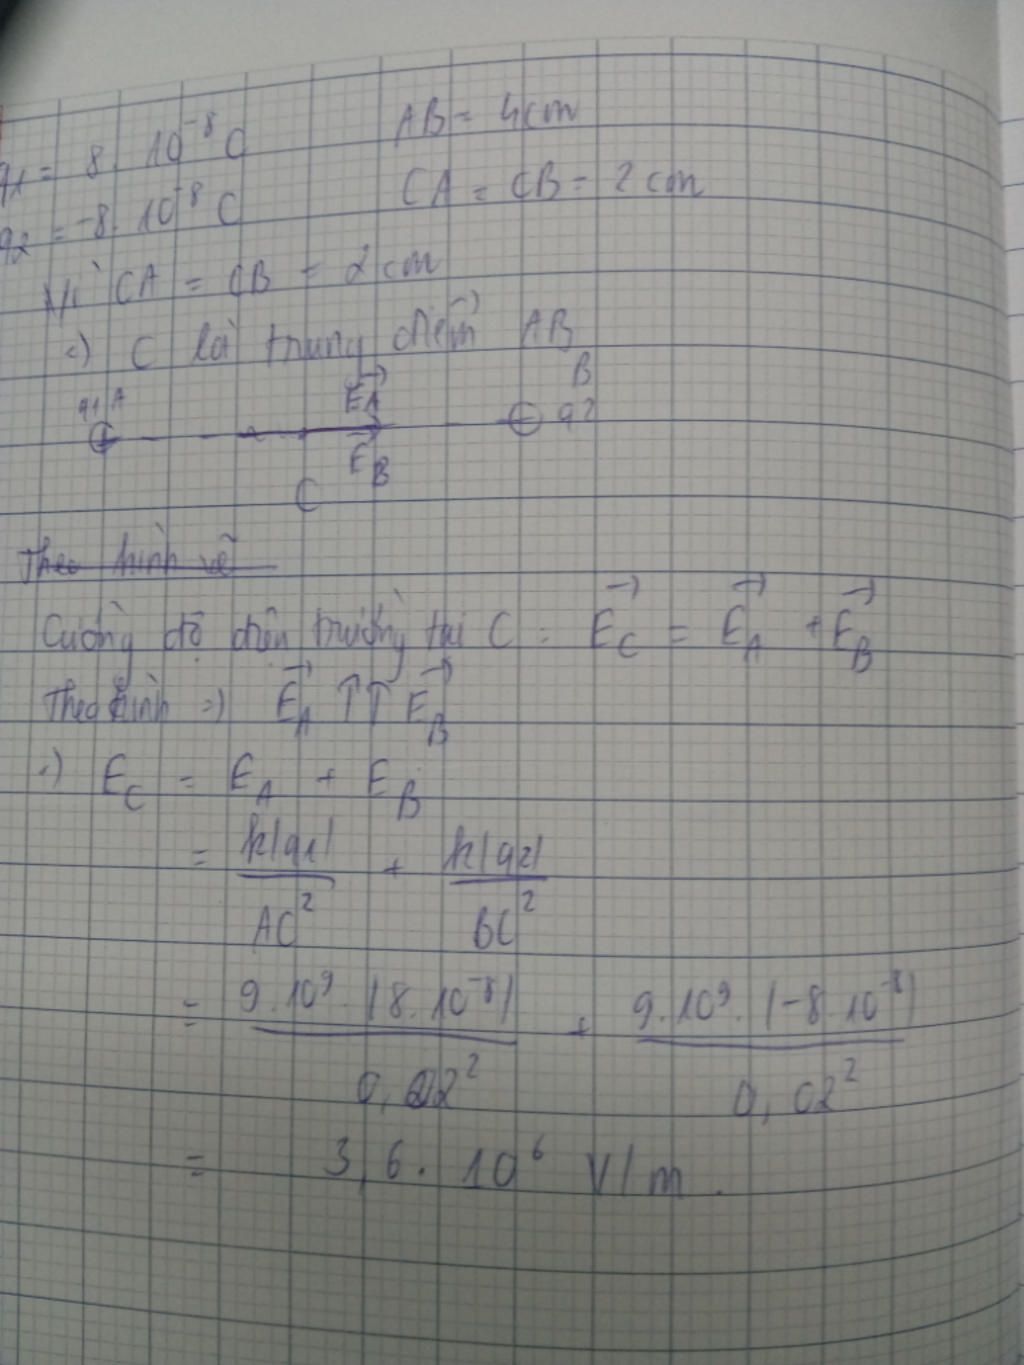 q1 = 8. 10⁻⁸ C AB = 4cm
q2 = -8. 10⁻⁸ C CA = CB = 2 cm
Vì CA = CB = 2 cm
=) C là trung điểm AB
q1 A E⃗A B q2
E⃗B
C
Theo hình vẽ
Cường độ điện trường tại C : E⃗C = E⃗A + E⃗B
Theo hình =) E⃗A ↑↑ E⃗B
=) EC = EA + EB
= k|q1| / AC² + k|q2| / BC²
= 9.10⁹. |8.10⁻⁸| / 0,02² + 9.10⁹. |-8.10⁻⁸| / 0,02²
= 3,6. 10⁶ V/m.